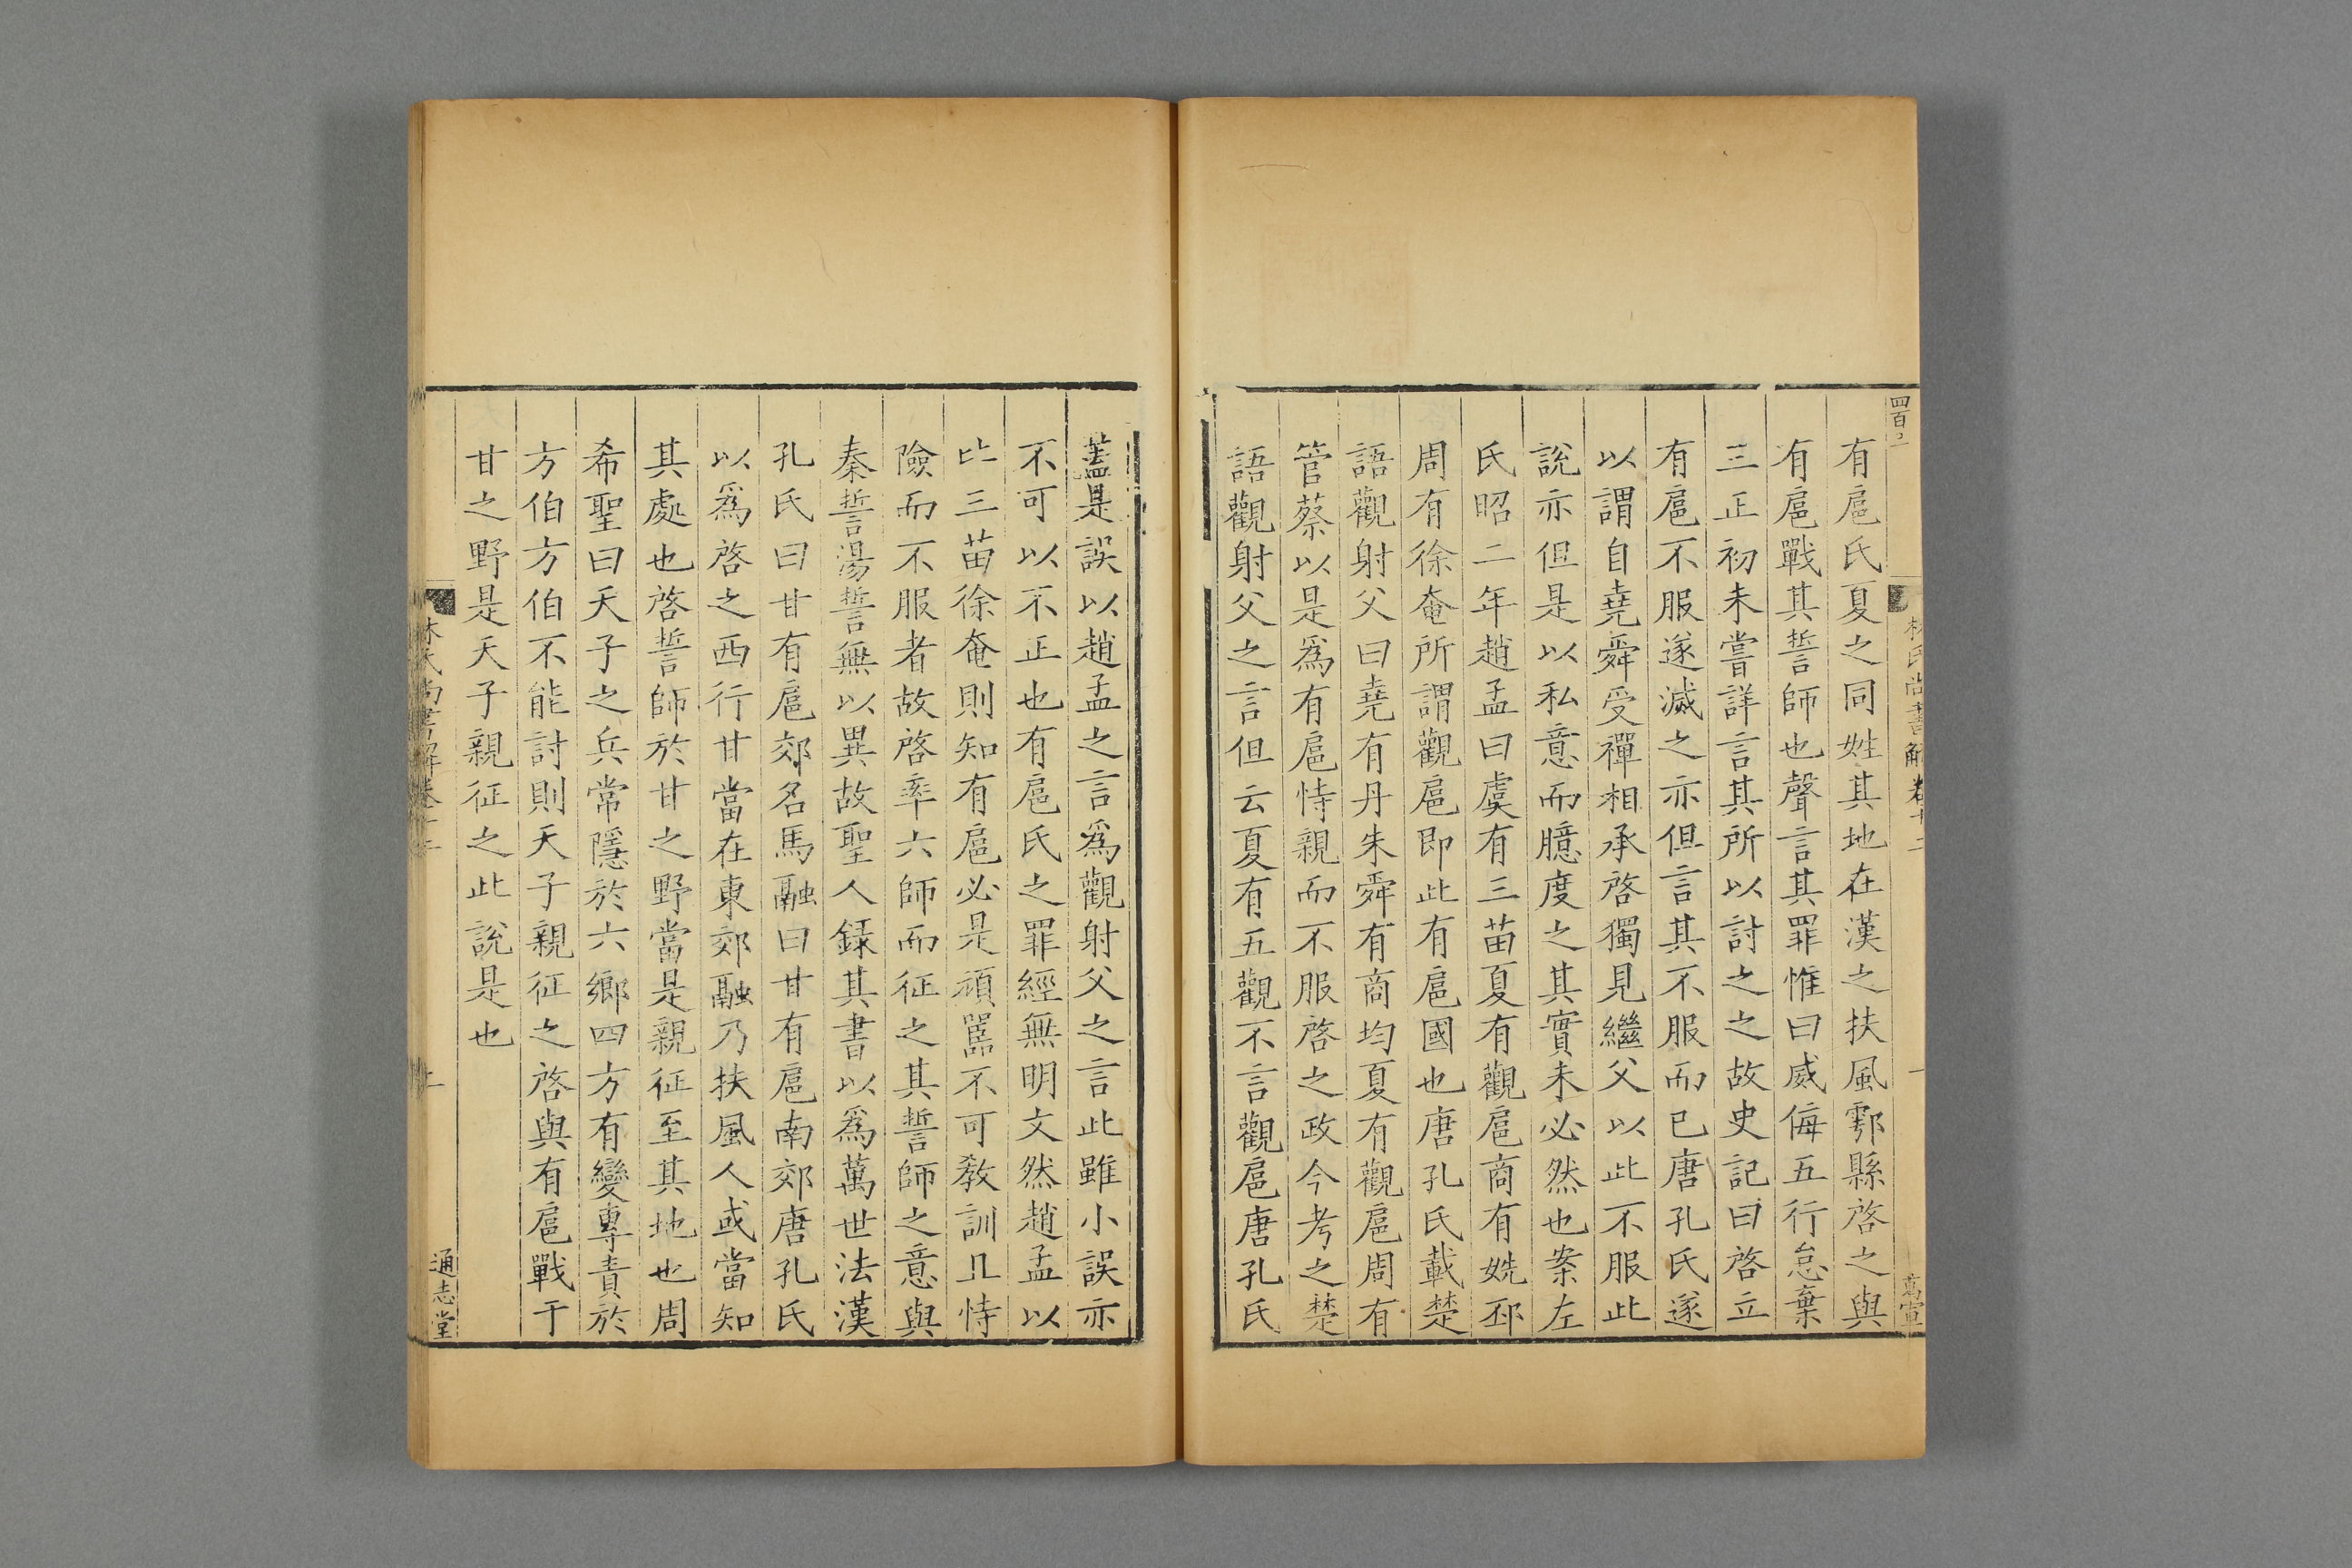 有扈氏夏之同姓其地在漢之扶風鄠縣啓之與
有扈戰其誓師也聲言其罪惟曰威侮五行怠棄
三正初未嘗詳言其所以討之之故史記曰啓立
有扈不服遂滅之亦但言其不服而已唐孔氏遂
以謂自堯舜受禪相承啓獨見繼父以此不服此
說亦但是以私意而臆度之其實未必然也案左
氏昭二年趙孟曰虞有三苗夏有觀扈商有姺邳
周有徐奄所謂觀扈即此有扈國也唐孔氏載楚
語觀射父曰堯有丹朱舜有商均夏有觀扈周有
管蔡以是爲有扈恃親而不服啓之政今考之楚
語觀射父之言但云夏有五觀不言觀扈唐孔氏
蓋是誤以趙孟之言爲觀射父之言此雖小誤亦
不可以不正也有扈氏之罪經無明文然趙孟以
比三苗徐奄則知有扈必是頑嚚不可敎訓且恃
險而不服者故啓率六師而征之其誓師之意與
秦誓湯誓無以異故聖人錄其書以爲萬世法漢
孔氏曰甘有扈郊名馬融曰甘有扈南郊唐孔氏
以爲啓之西行甘當在東郊融乃扶風人或當知
其處也啓誓師於甘之野當是親征至其地也周
希聖曰天子之兵常隱於六鄉四方有變專責於
方伯方伯不能討則天子親征之啓與有扈戰于
甘之野是天子親征之此說是也
林氏尚書解卷十二
通志堂